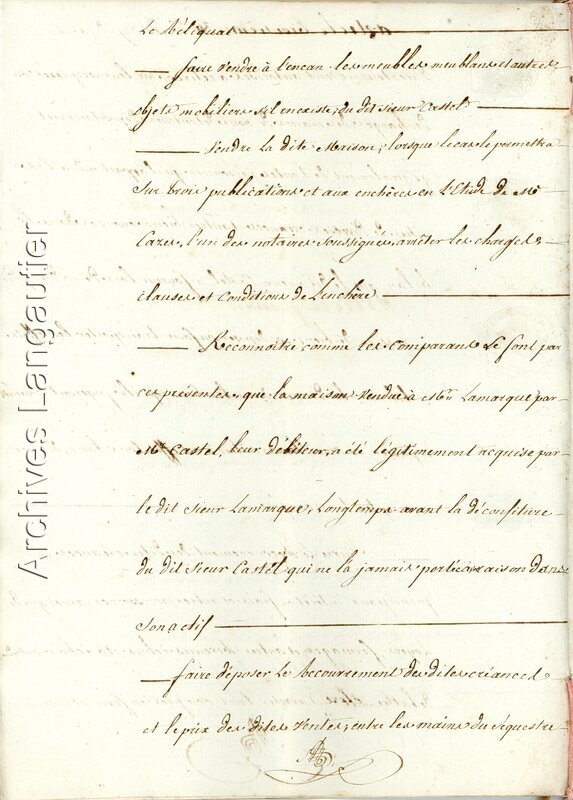 Le Réliquat
faire vendre à l'encan les meubles meublans et autres
objets mobiliers s'il en existe, du dit sieur Castel
Vendre la dite Maison, lorsque le cas le permettra
Sur trois publications et aux enchères en l'Etude de Me
Cazes, l'un des notaires soussignés, arrêter les charges,
clauses et conditions de L'enchère
Reconnoitre comme les comparans Le font par
ces présentes, que la maison vendue à Mr Lamarque par
Mr Castel, leur débiteur, a été légitimement acquise par
le dit sieur Lamarque, Longtemps avant la déconfiture
du dit sieur Castel qui ne la jamais portée à raison dans
son actif
faire déposer le recouvrement des dites créances
et le prix des dites ventes, entre les mains du séquestre
Archives Langautier